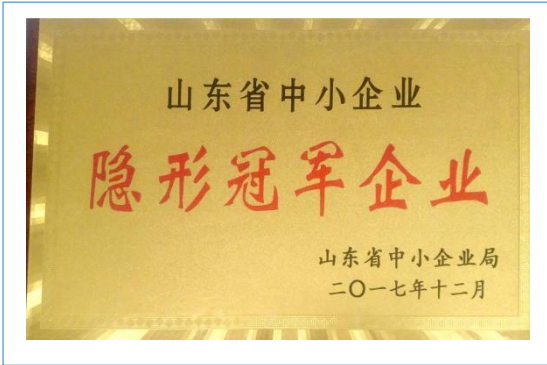 山东省中小企业
隐形冠军企业
山东省中小企业局
二〇一七年十二月